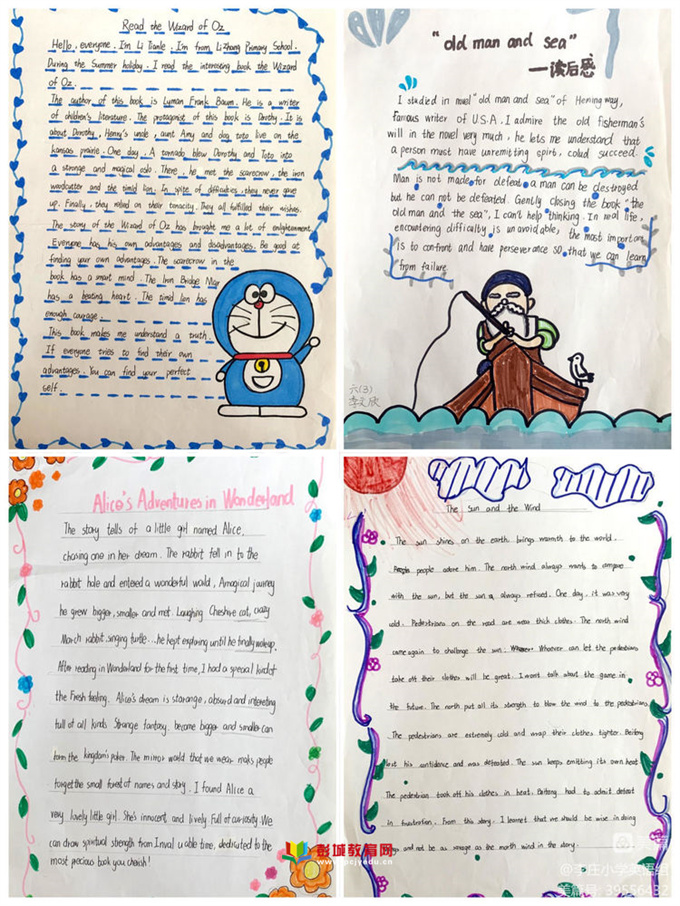 Read the Wizard of Oz
Hello, everyone. I'm Li Tianle. I'm from Lizhang Primary School.
During the Summer holiday. I read the interesting book the Wizard
of Oz.
The author of this book is Lyman Frank Baum. He is a writer
of children's literature. The protagonist of this book is Dorothy. It is
about Dorothy, Henry's uncle, aunt Amy and dog toto live on the
kansas prairie. One day, A tornado blow Dorothy and Toto into
a strange and magical oslo. There, he met the scarecrow, the iron
woodcutter and the timid lion. In spite of difficulties, they never gave
up. Finally, they relied on their tenacity. They all fulfilled their wishes.
The story of the Wizard of Oz has brought me a lot of enlightenment.
Everyone has his own advantages and disadvantages. Be good at
finding your own advantages. The scarecrow in the
book has a smart mind. The Iron Bridge May
has a beating heart. The timid lion has
enough courage.
This book makes me understand a truth.
If everyone tries to find their own
advantages. You can find your perfect
self.
"old man and sea"
—读后感
I studied in novel "old man and sea" of Heming way,
famous writer of U.S.A. I admire the old fisherman's
will in the novel very much, he lets me understand that
a person must have unremitting spirt, colud succeed.
Man is not made for defeat a man can be destroyed
but he can not be defeated. Gently closing the book "the
old man and the sea", I can't help thinking. In real life,
encountering difficulty is unavoidable, the most important
is to confront and have perseverance so that we can learn
from failure.
六(3)
Alice's Adventures in Wonderland
The story tells of a little girl named Alice,
chasing one in her dream. The rabbit fell in to the
rabbit hole and entered a wonderful world, A magical journey
he grew bigger, smaller and met. Laughing Cheshire cat, crazy
March rabbit, singing turtle... he kept exploring until he finally woke up.
After reading in Wonderland for the first time, I had a special kind of
the Fresh feeling. Alice's dream is starange, absurd and interesting
full of all kinds Strange fantasy. become bigger and smaller can
form the kingdom's poker. The mirror world that we wear maks people
forget the small forest of names and story. I found Alice a
very lively little girl. She's innocent and lively. Full of curiosity. We
can draw spiritual strength from Inval u able time, dedicated to the
most precious book you cherish!
The Sun and the Wind
The sun shines on the earth brings warmth to the world.
people adore him. The north wind always wants to compare
with the sun, but the sun always refused. One day, it was very
cold. Pedestrians on the road are wear thick clothes. The north wind
came again to challenge the sun. Whoever can let the pedestrians
take off their clothes will be great. I wont talk about the game in
the future. The north put all its strength to blow the wind to the pedestrians.
The pedestrians are extremely cold and wrap their clothes tighter. Beifeng
lost his confidence and was defeated. The sun keeps emitting its own heat.
The pedestrian took off his clothes in heat. Beifeng had to admit defeat
in frustration. From this story. I learned that we should be wise in doing
and not be as savage as the north wind in the story.
彭城教育网
pcjyedu.cn
美篇
@李庄小学英语组
美篇号: 39556432